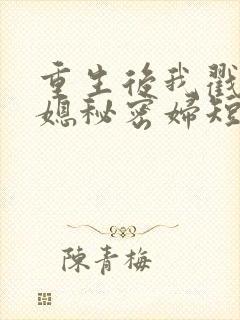 重生後我戳
媳秘密婦短
陳青梅